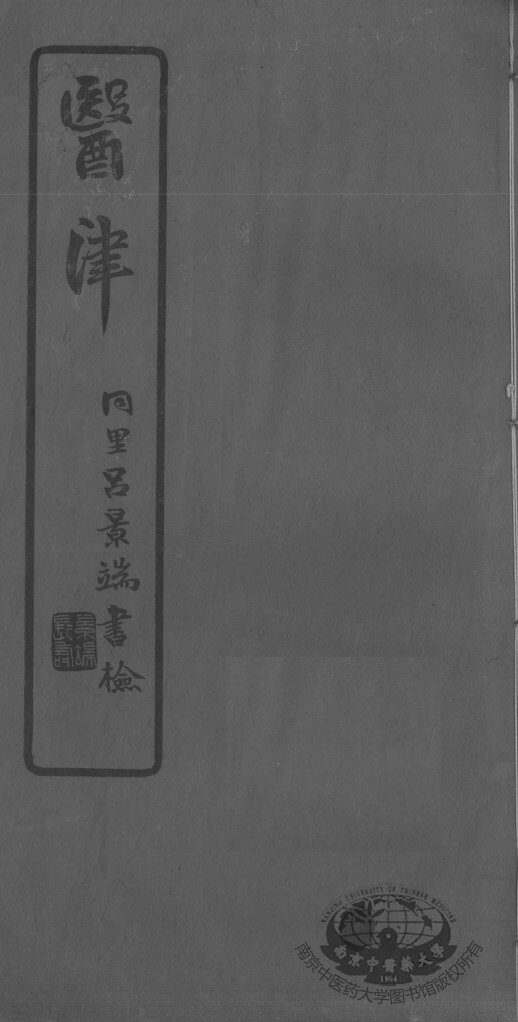 醫津
同里呂景端書檢
NANJING UNIVERSITY OF CHINESE MEDICINE
南京中醫藥大學
1954
南京中医药大学图书馆版权所有